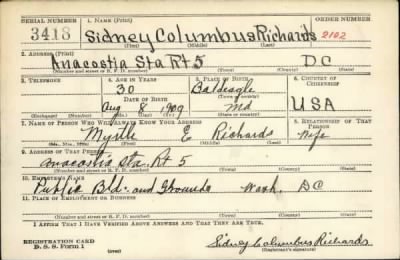 SERIAL NUMBER 1. NAME (Print) ORDER NUMBER
3418 Sidney Columbus Richards 2102
(First) (Middle) (Last)
2. ADDRESS (Print)
Anacostia Sta Rt 5 DC
(Number and street or R. F. D. number) (Town) (County) (State)
3. TELEPHONE 4. AGE IN YEARS 5. PLACE OF BIRTH 6. COUNTRY OF CITIZENSHIP
30 Baldeagle
DATE OF BIRTH (Town or county)
Aug 8 1909 Md USA
(Exchange) (Number) (Mo.) (Day) (Yr.) (State or country)
7. NAME OF PERSON WHO WILL ALWAYS KNOW YOUR ADDRESS 8. RELATIONSHIP OF THAT PERSON
Myrtle E Richards Wife
(Mr., Mrs., Miss) (First) (Middle) (Last)
9. ADDRESS OF THAT PERSON
Anacostia Sta. Rt 5
(Number and street or R. F. D. number) (Town) (County) (State)
10. EMPLOYER'S NAME
Public Bld. and Grounds Wash. DC
11. PLACE OF EMPLOYMENT OR BUSINESS
(Number and street or R. F. D. number) (Town) (County) (State)
I AFFIRM THAT I HAVE VERIFIED ABOVE ANSWERS AND THAT THEY ARE TRUE.
REGISTRATION CARD
D. S. S. Form 1 Sidney Columbus Richards
(Registrant's signature)